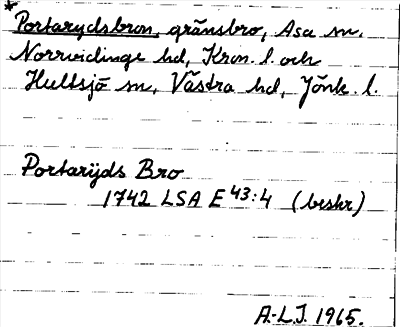 *Portarydsbron, gränsbro, Asa sn,
Norrvidinge hd, Kron. l. och
Hultsjö sn, Västra hd, Jönk. l.
Portarÿds Bro
1742 LSA E 43:4 (beskr)
A.-L.J. 1965.